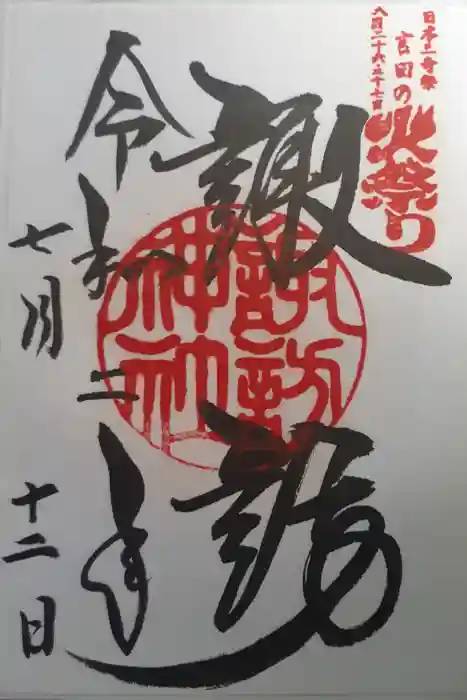 日本三奇祭
吉田の
火祭り
八月二十六・二十七日
諏訪
諏訪
神社
令和二年
七月十二日